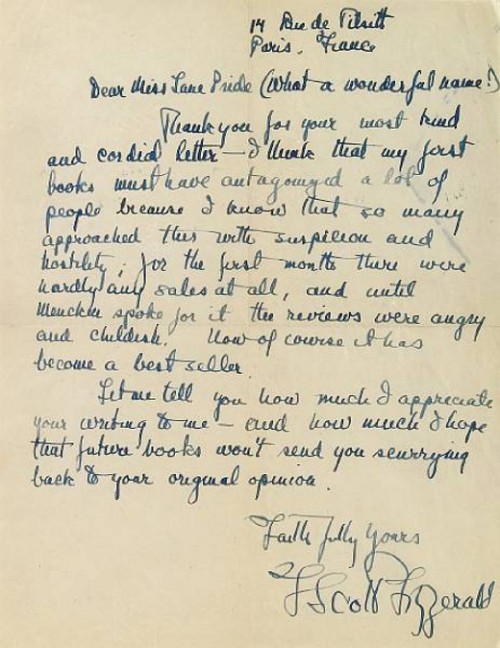 14 Rue de Tilsitt
Paris, France
Dear Miss Jane Pride (What a wonderful name!)
Thank you for your most kind
and cordial letter — I think that my first
books must have antagonized a lot of
people because I know that so many
approached this with suspicion and
hostility; for the first month there were
hardly any sales at all, and until
Mencken spoke for it the reviews were angry
and childish. Now of course it has
become a best seller.
Let me tell you how much I appreciate
your writing to me — and how much I hope
that future books won't send you scurrying
back to your original opinion.
Faithfully Yours
F Scott Fitzgerald